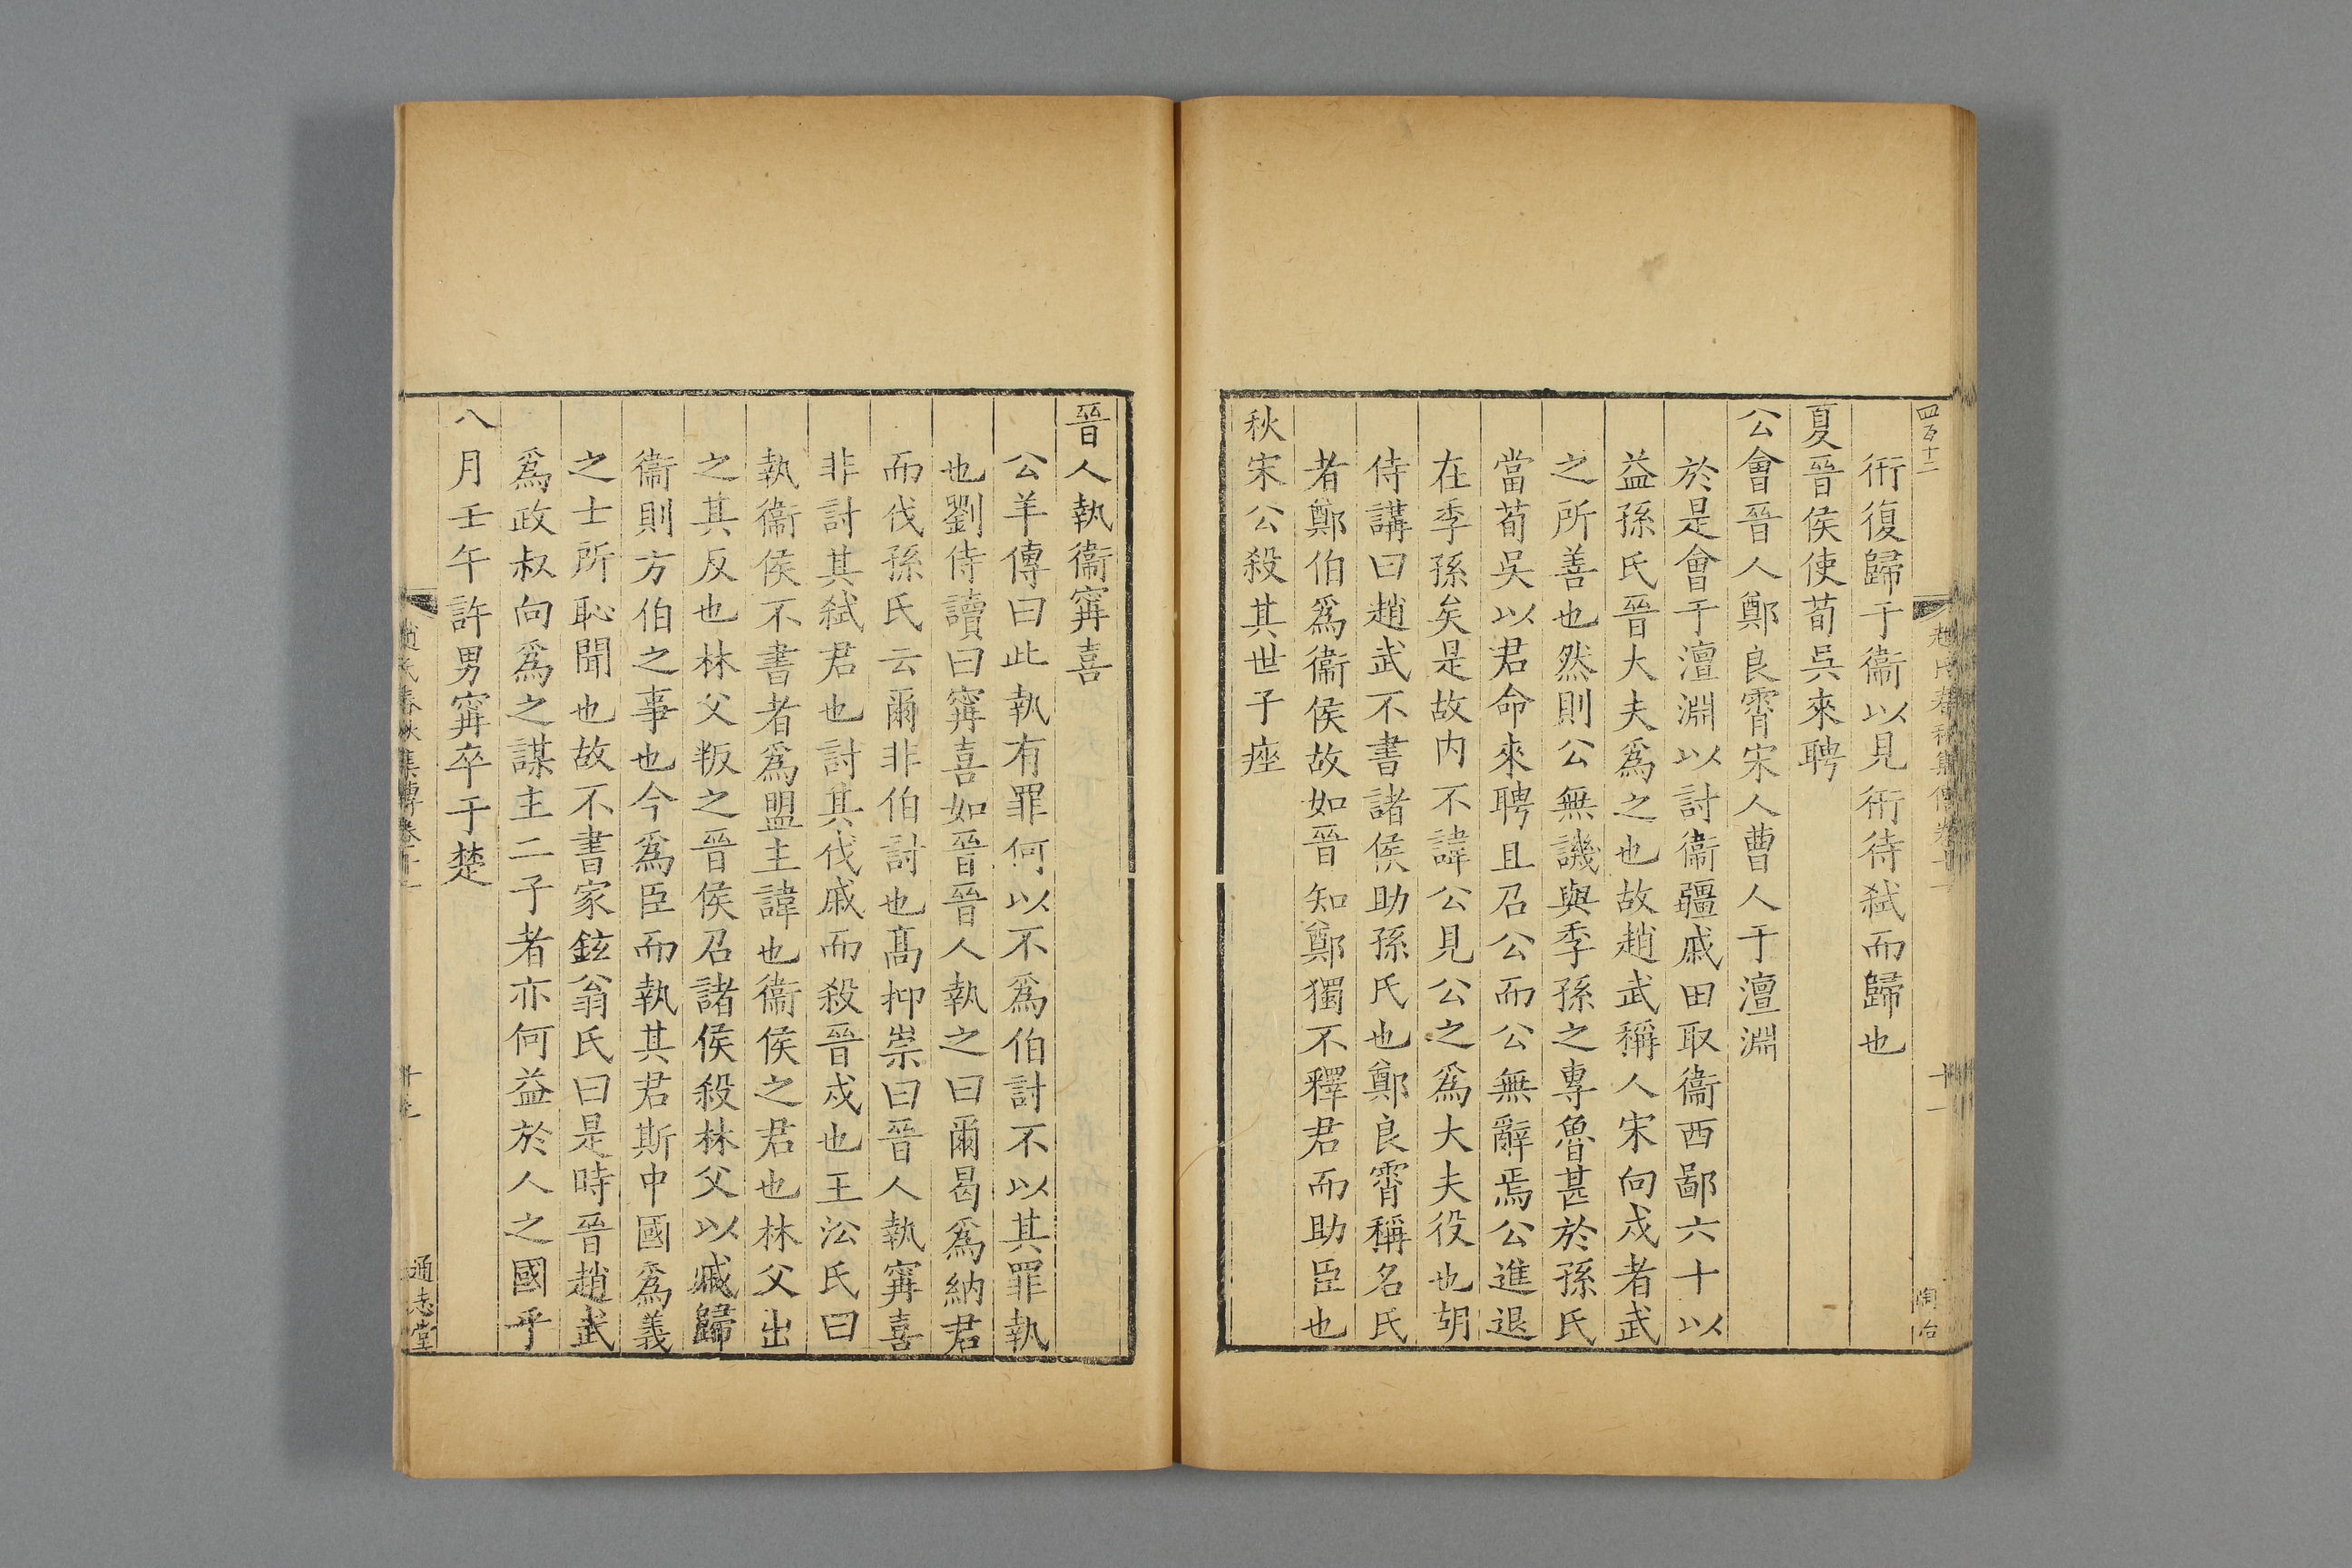 四百十二
衎復歸于衞以見衎待弑而歸也
夏晉侯使荀吳來聘
公會晉人鄭良霄宋人曹人于澶淵
於是會于澶淵以討衞疆戚田取衞西鄙六十以
益孫氏晉大夫爲之也故趙武稱人宋向戌者武
之所善也然則公無譏與季孫之專魯甚於孫氏
當荀吳以君命來聘且召公而公無辭焉公進退
在季孫矣是故内不諱公見公之爲大夫役也胡
侍講曰趙武不書諸侯助孫氏也鄭良霄稱名氏
者鄭伯爲衞侯故如晉知鄭獨不釋君而助臣也
秋宋公殺其世子痤
晉人執衞寗喜
公羊傳曰此執有罪何以不爲伯討不以其罪執
也劉侍讀曰寗喜如晉晉人執之曰爾曷爲納君
而伐孫氏云爾非伯討也髙抑崇曰晉人執寗喜
非討其弑君也討其伐戚而殺晉戍也王㳂氏曰
執衞侯不書者爲盟主諱也衞侯之君也林父出
之其反也林父叛之晉侯召諸侯殺林父以戚歸
衞則方伯之事也今爲臣而執其君斯中國爲義
之士所恥聞也故不書家鉉翁氏曰是時晉趙武
爲政叔向爲之謀主二子者亦何益於人之國乎
八月壬午許男寗卒于楚
趙氏春秋集傳卷十一
通志堂